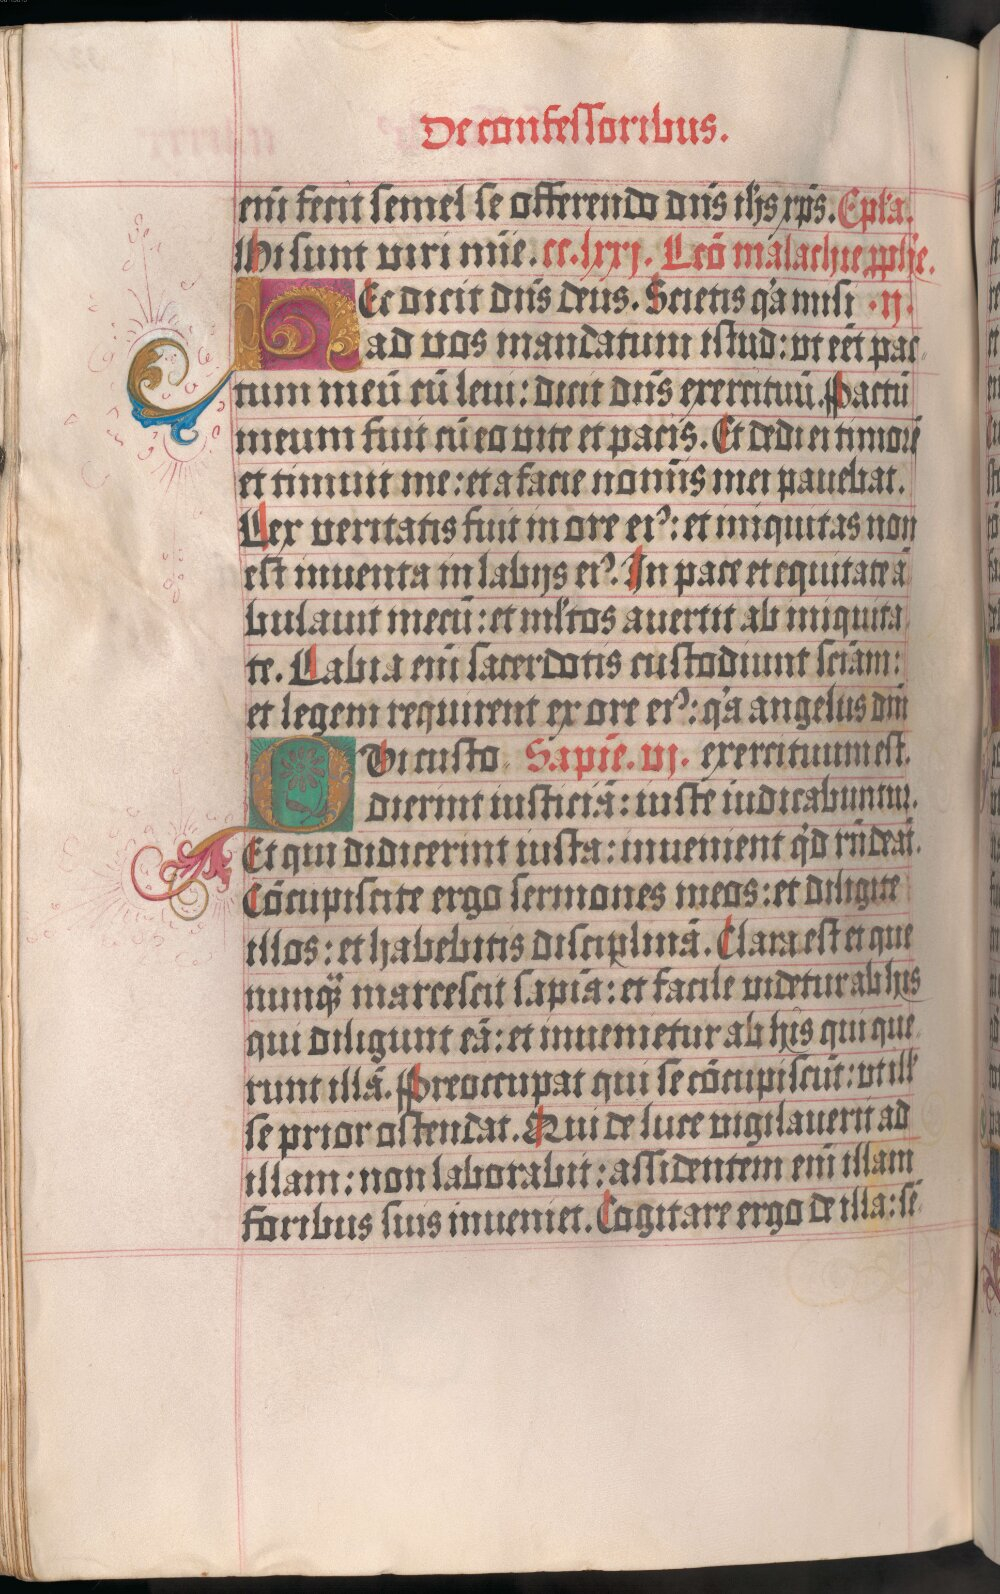 De confessoribus.
eni fecit semel se offerendo dn̄s ih̄s xp̄s. Epl̄a.
Hi sunt viri mīe. cc.lxxj. Lc̄o malachie ꝓph̄e.
Hec dicit dn̄s deus. Scietis q̓a misi .ij.
ad vos mandatum istud: vt eēt pac-
tum meū cū leui: dicit dn̄s exercituū. Pactū
meum fuit cū eo vite et pacis. Et dedi ei timorē
et timuit me: et a facie nomīs mei pauebat.
Lex veritatis fuit in ore eiꝰ: et iniquitas non
est inuenta in labijs eiꝰ. In pace et equitate ā
bulauit mecū: et ml̓tos auertit ab iniquita
te. Labia eni sacerdotis custodiunt sciam̄:
et legem requirent ex ore eiꝰ: q̓a angelus dn̄i
Vi custo Sapie. vj. exercituum est.
dierint iusticiā: iuste iudicabuntur.
Et qui didicerint iusta: inuenient q̓d rn̄deāt.
Cōcupiscite ergo sermones meos: et diligite
illos: et habebitis disciplinā. Clara est et que
nunqᷓ marcescit sapīa: et facile videtur ab his
qui diligunt eā: et inuenietur ab his qui que
runt illā. Preoccupat qui se cōcupiscūt: vt ill̓
se prior ostendat. Qui de luce vigilauerit ad
illam: non laborabit: assidentem eni illam
foribus suis inueniet. Cogitare ergo de illa: sē